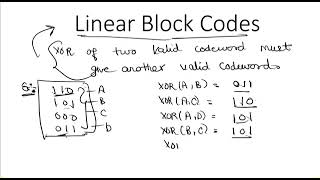 Linear Block Codes
XOR of two valid codeword must
give another valid codewords.
110 A
101 B
000 C
011 D
XOR(A,B) = 011
XOR(A,C) = 110
XOR(A,D) = 101
XOR(B,C) = 101
XOR